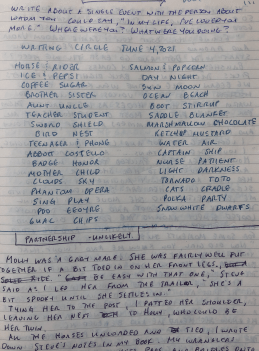 WRITE ABOUT A SINGLE EVENT WITH THE PERSON ABOUT
WHOM YOU COULD SAY, "IN MY LIFE, I'VE LOVED YOU
MORE." WHERE WERE YOU? WHAT WERE YOU DOING?
WRITING CIRCLE JUNE 4, 2021
HORSE & RIDER SALMON & POPCORN
ICE & PEPSI DAY NIGHT
COFFEE SUGAR SUN MOON
BROTHER SISTER OCEAN BEACH
AUNT UNCLE BOOT STIRRUP
TEACHER STUDENT SADDLE BLANKET
SWORD SHIELD MARSHMALLOW & CHOCOLATE
BIRD NEST KETCHUP MUSTARD
TEENAGER & PHONE WATER AIR
ABBOTT COSTELLO CAPTAIN SHIP
BADGE HONOR NURSE PATIENT
MOTHER CHILD LIGHT DARKNESS
CLOUDS SKY TORNADO TOTO
PHANTOM OPERA CATS CRADLE
SING PLAY POLKA PARTY
POO EEOYRE SNOW WHITE DWARFS
GUAC CHIPS
PARTNERSHIP - UNLIKELY
MOLLY WAS A GRAY MARE; SHE WAS FAIRLY WELL PUT
TOGETHER IF A BIT TOED IN ON HER FRONT LEGS,
SIDE. "BE EASY WITH THAT ONE," STEVE
SAID AS I LED HER FROM THE TRAILER, "SHE'S A
BIT SPOOKY UNTIL SHE SETTLES IN."
TYING HER TO THE POST, I PATTED HER SHOULDER,
LEAVING HER NEXT TO HOLLY, WHO COULD BE
HER TWIN.
ALL THE HORSES UNLOADED AND TIED, I WROTE
DOWN STEVE'S NOTES IN MY BOOK. MY WRANGLERS